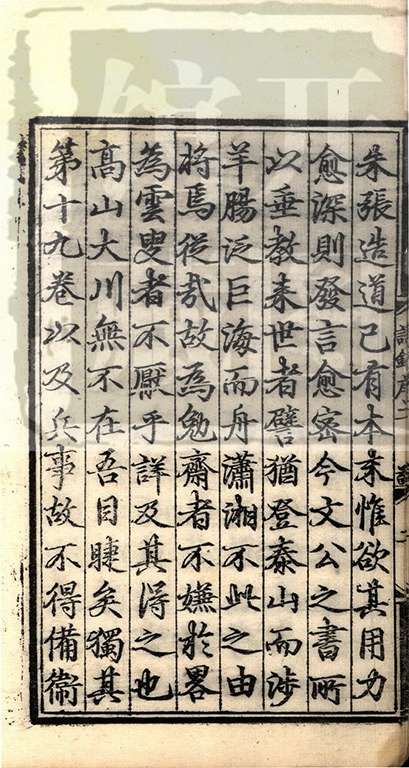 朱張造道已有本末惟欲其用力
愈深則發言愈密今文公之書所
以垂教来世者譬猶登泰山而涉
羊腸泛巨海而舟瀟湘不此之由
将焉從㦲故為勉齋者不嫌於畧
為雲叟者不厭乎詳及其得之也
髙山大川無不在吾目睫矣獨其
第十九卷以及兵事故不得備衞